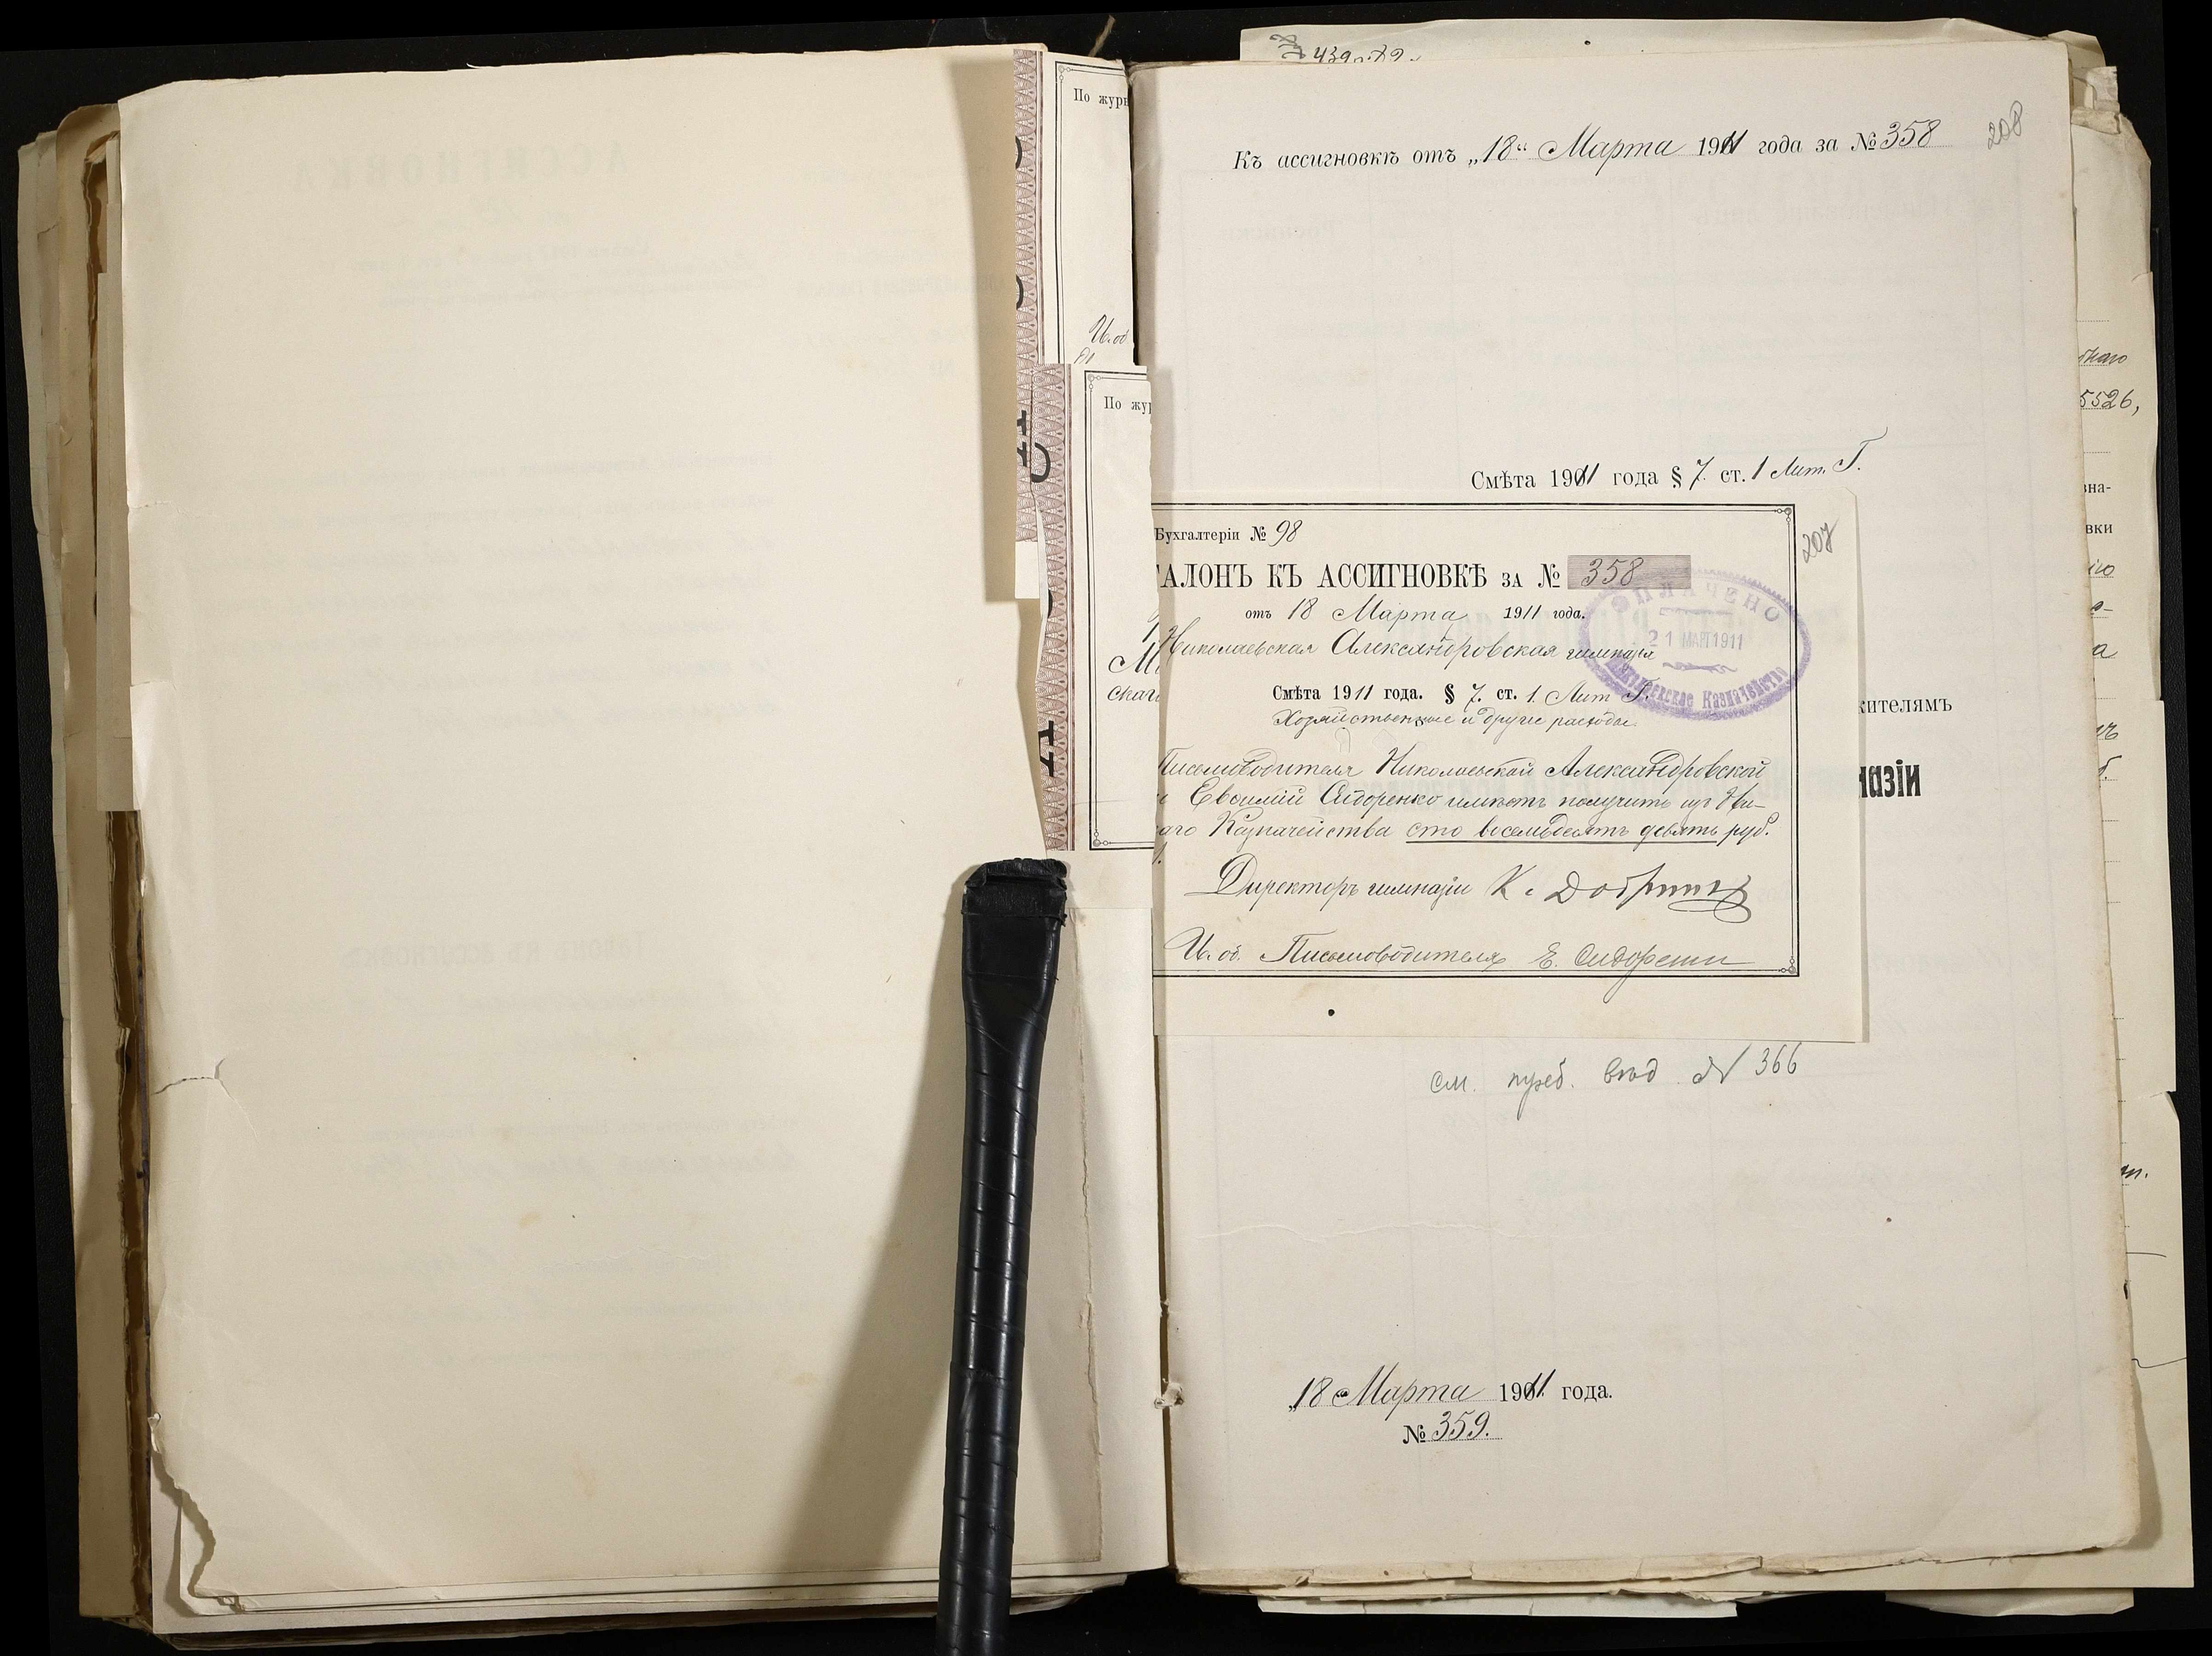 439
По журн
И. об
По жур
М
скаго
Къ ассигновкѣ отъ „18“ Марта 1911 года за № 358
208
Смѣта 1911 года § 7. ст. 1 Лит. Г.
Бухгалтеріи № 98
207
ТАЛОНЪ КЪ АССИГНОВКѢ ЗА № 358
отъ 18 Марта 1911 года.
Николаевская Александровская гимназія
ОПЛАЧЕНО
21 МАР 1911
Николаевское Казначейство
Смѣта 1911 года. § 7. ст. 1. Лит Г.
Хозяйственные и другіе расходы
Письмоводителя Николаевской Александровской
Евфимій Сидоренко имѣетъ получить изъ Ни-
аго Казначейства сто восемьдесятъ девять руб.
Директоръ гимназіи К.
И. об. Письмоводителя Е. Сидоренко
жителямъ
назіи
см. треб. вѣд. № 366
„18 Марта 1911 года.
№ 359.
5526,
зна-
вки